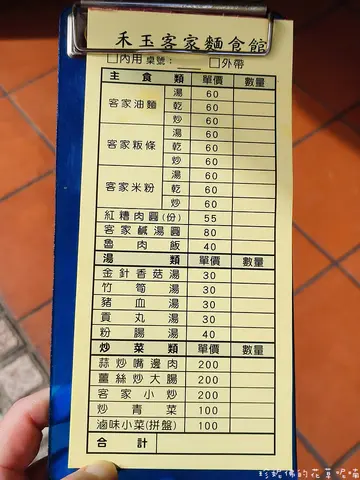 禾玉客家麵食館
□內用 桌號：____ □外帶
主食類 單價 數量
客家油麵 湯 60
乾 60
炒 60
客家粄條 湯 60
乾 60
炒 60
客家米粉 湯 60
乾 60
炒 60
紅糟肉圓(份) 55
客家鹹湯圓 80
魯肉飯 40
湯類 單價 數量
金針香菇湯 30
竹筍湯 30
豬血湯 30
貢丸湯 30
粉腸湯 40
炒菜類 單價 數量
蒜炒嘴邊肉 200
薑絲炒大腸 200
客家小炒 200
炒青菜 100
滷味小菜(拼盤) 100
合計